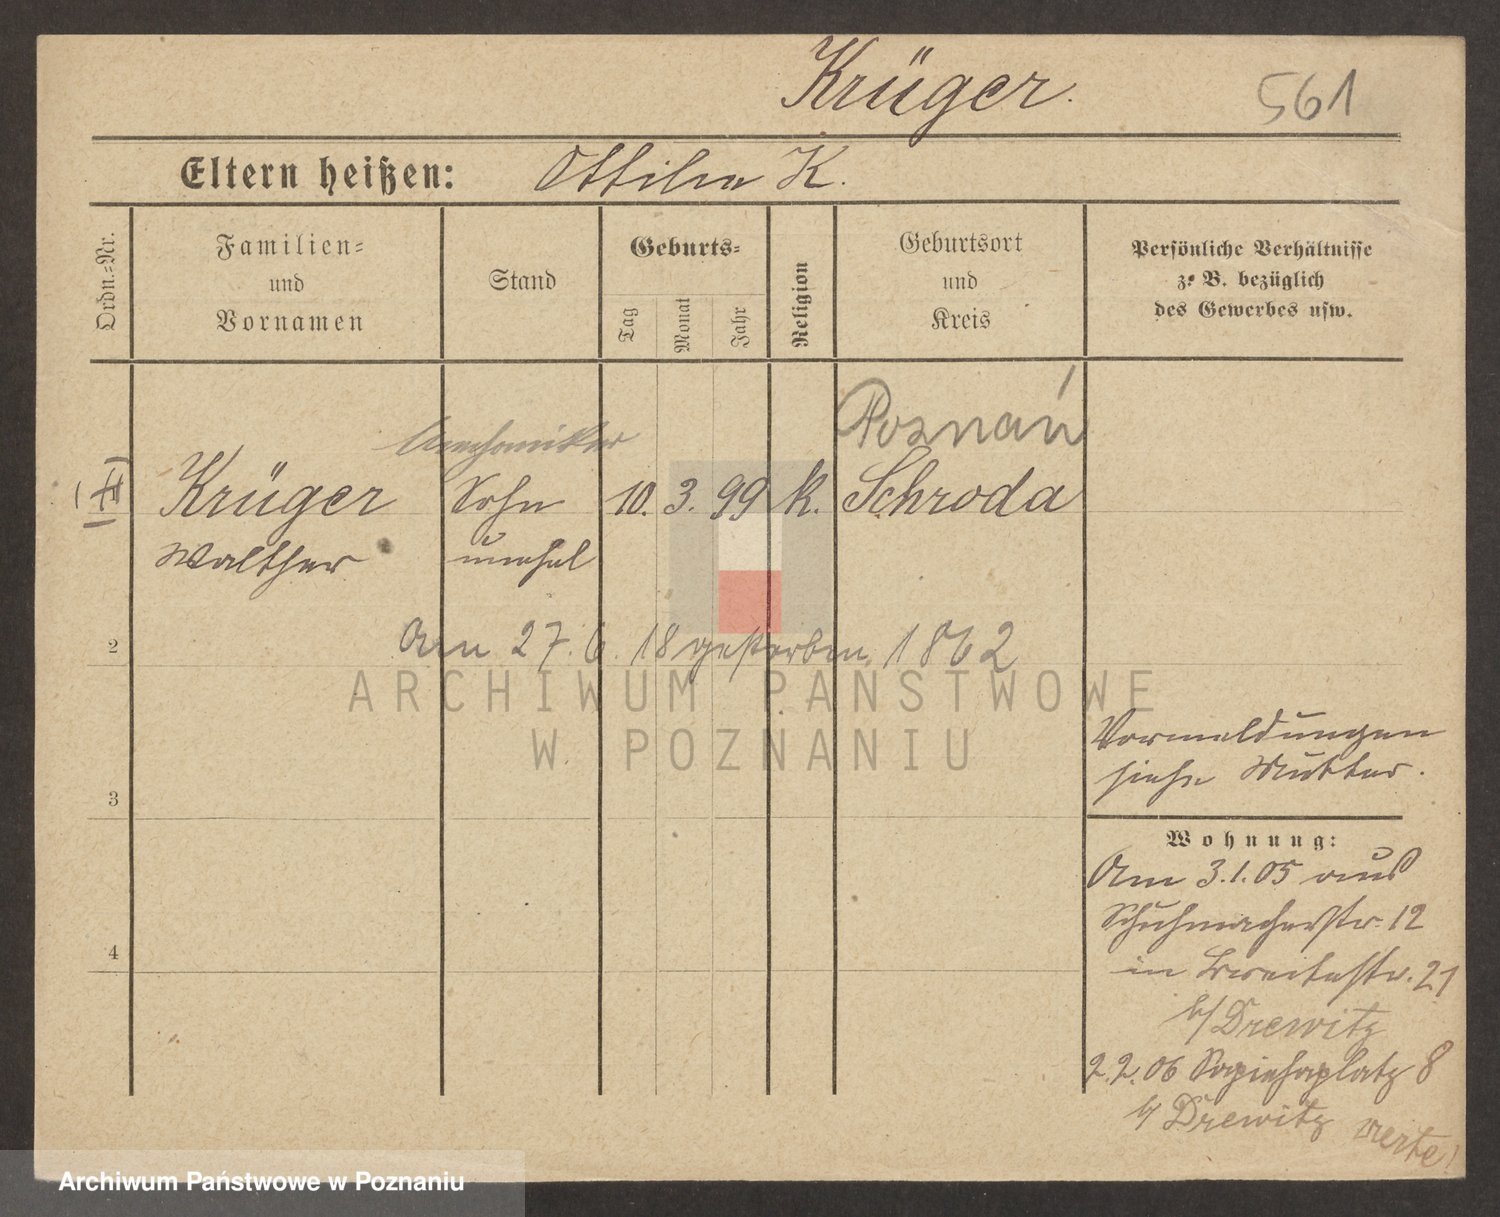 Krüger.
561
Eltern heißen: Ottilie K.
Ordn.=Nr.
Familien=
und
Vornamen
Stand
Geburts=
Tag
Monat
Jahr
Religion
Geburtsort
und
Kreis
Persönliche Verhältnisse
z. B. bezüglich
des Gewerbes usw.
Mechaniker
Poznań
Krüger Sohn 10. 3. 99 k. Schroda
Walther unehel
2
Am 27. 6. 18 gestorben. 1862
ARCHIWUM PAŃSTWOWE
W POZNANIU
Vormeldungen
siehe Mutter.
3
Wohnung:
Am 3.1.05 aus
Schuhmacherstr. 12
in Breitestr. 21
b/ Drewitz
2.2.06 Sapiehaplatz 8
b/ Drewitz verte!
4
Archiwum Państwowe w Poznaniu